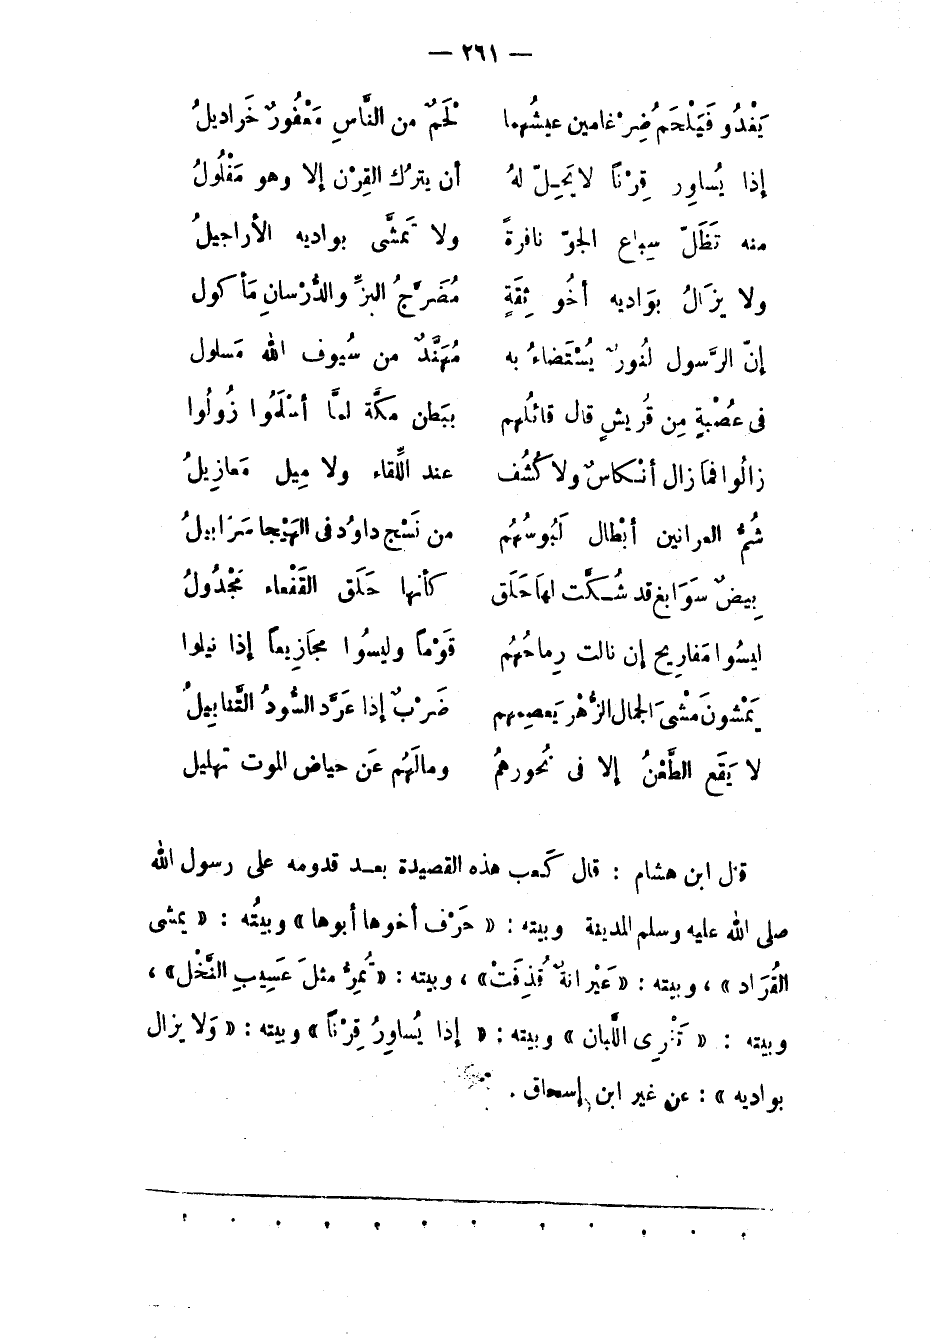 — ٢٦١ —
يَغْدُو فَيَلْحَمُ ضِرْغامين عيشُهما لَحْمٌ من النَّاسِ مَعْفُورٌ خَراديلُ
إذا يُساوِر قِرْناً لا يَحِلّ لهُ أن يترُك القِرْن إلا وهو مَفْلُولُ
منه تَظَلّ سِباع الجوّ نافرةً ولا تَمشَّى بواديه الأراجيلُ
ولا يزَالُ بوَاديه أخُو ثِقَةٍ مُضَرَّجُ البزِّ والدُّرْسانِ مَأكول
إنّ الرَّسول لنُورٌ يُسْتَضاءُ به مُهَنَّدٌ من سُيوف الله مَسلول
فى عُصْبةٍ مِن قُريشٍ قال قائلُهم ببَطن مكَّة لمَّا أسْلَمُوا زُولُوا
زالُوا فمَا زال أنْكاسٌ ولا كُشُف عند اللِّقاء ولا مِيل مَعازِيلُ
شُمُّ العرانين أبْطال لَبُوسُهُم من نَسْج داوُد فى الهَيْجا سَرَابيلُ
بِيضٌ سَوَابغ قد شُكَّت لهَا حَلَق كأنها حَلَق القَفْعاء مَجْدُولُ
ليسُوا مَفاريح إن نالت رِماحُهُم قَوْماً وليسُوا مجَازِيعاً إذا نيلوا
يَمْشونَ مَشْىَ الجمال الزُّهْر يَعصمهم ضَرْبٌ إذا عَرَّد السُّودُ التَّنابِيلُ
لا يَقَع الطَّعْنُ إلا فى نُحورهُم ومالَهُم عَن حياض الموت تهليل
قال ابن هشام : قال كَعب هذه القصيدة بعد قدومه على رسول الله
صلى الله عليه وسلم المدينة وبيته : « حَرْف أخوها أبوها » وبيتُه : « يمشى
القُرَاد » ، وبيته : « عَيْرانةٌ قُذِفَتْ » ، وبيته : « تُمِرُّ مثلَ عَسِيبِ النَّخْل » ،
وبيته : « تَفْرِى اللَّبان » وبيته : « إذا يُساوِرُ قِرْناً » وبيته : « وَلا يزال
بواديه » : عن غير ابن إسحاق .